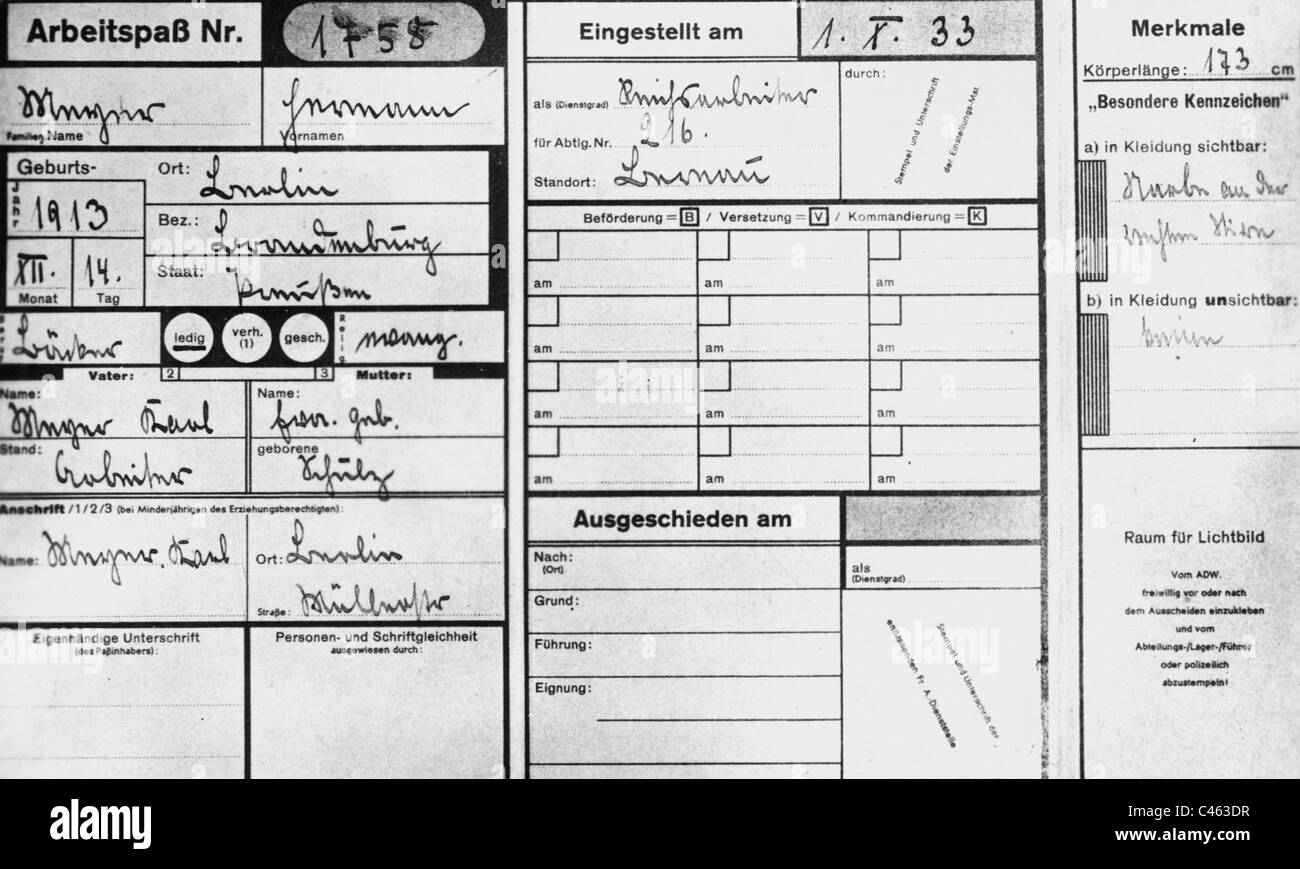 Arbeitspaß Nr. 1758
Meyer Hermann
Familien Name Vornamen
Geburts-
Jahr 1913
XII. 14.
Monat Tag
Ort: Berlin
Bez.: Brandenburg
Staat: Preußen
Bäcker
ledig verh. (1) gesch.
Relig. evang.
Vater: 2 3 Mutter:
Name: Meyer Karl
Stand: Arbeiter
Name: Eva. geb.
geborene Schulz
Anschrift /1/2/3 (bei Minderjährigen des Erziehungsberechtigten):
Name: Meyer, Karl Ort: Berlin
Straße: Müllerstr
Eigenhändige Unterschrift
(des Paßinhabers):
Personen- und Schriftgleichheit
ausgewiesen durch:
Eingestellt am 1. X. 33
als (Dienstgrad) Reichsarbeiter
für Abtlg. Nr. 216.
Standort: Bernau
durch:
Stempel und Unterschrift
der Einstellungs-Mst.
Beförderung = B / Versetzung = V / Kommandierung = K
am am am
am am am
am am am
am am am
Ausgeschieden am
Nach:
(Ort)
Grund:
Führung:
Eignung:
als
(Dienstgrad)
Stempel und Unterschrift der
entlassenden Fr. A.-Dienststelle
Merkmale
Körperlänge: 173 cm
„Besondere Kennzeichen"
a) in Kleidung sichtbar:
Narbe an der
rechten Stirn
b) in Kleidung unsichtbar:
keine
Raum für Lichtbild
Vom ADW.
freiwillig vor oder nach
dem Ausscheiden einzukleben
und vom
Abteilungs-/Lager-/Führer
oder polizeilich
abzustempeln!
alamy
Image ID: C463DR
www.alamy.com